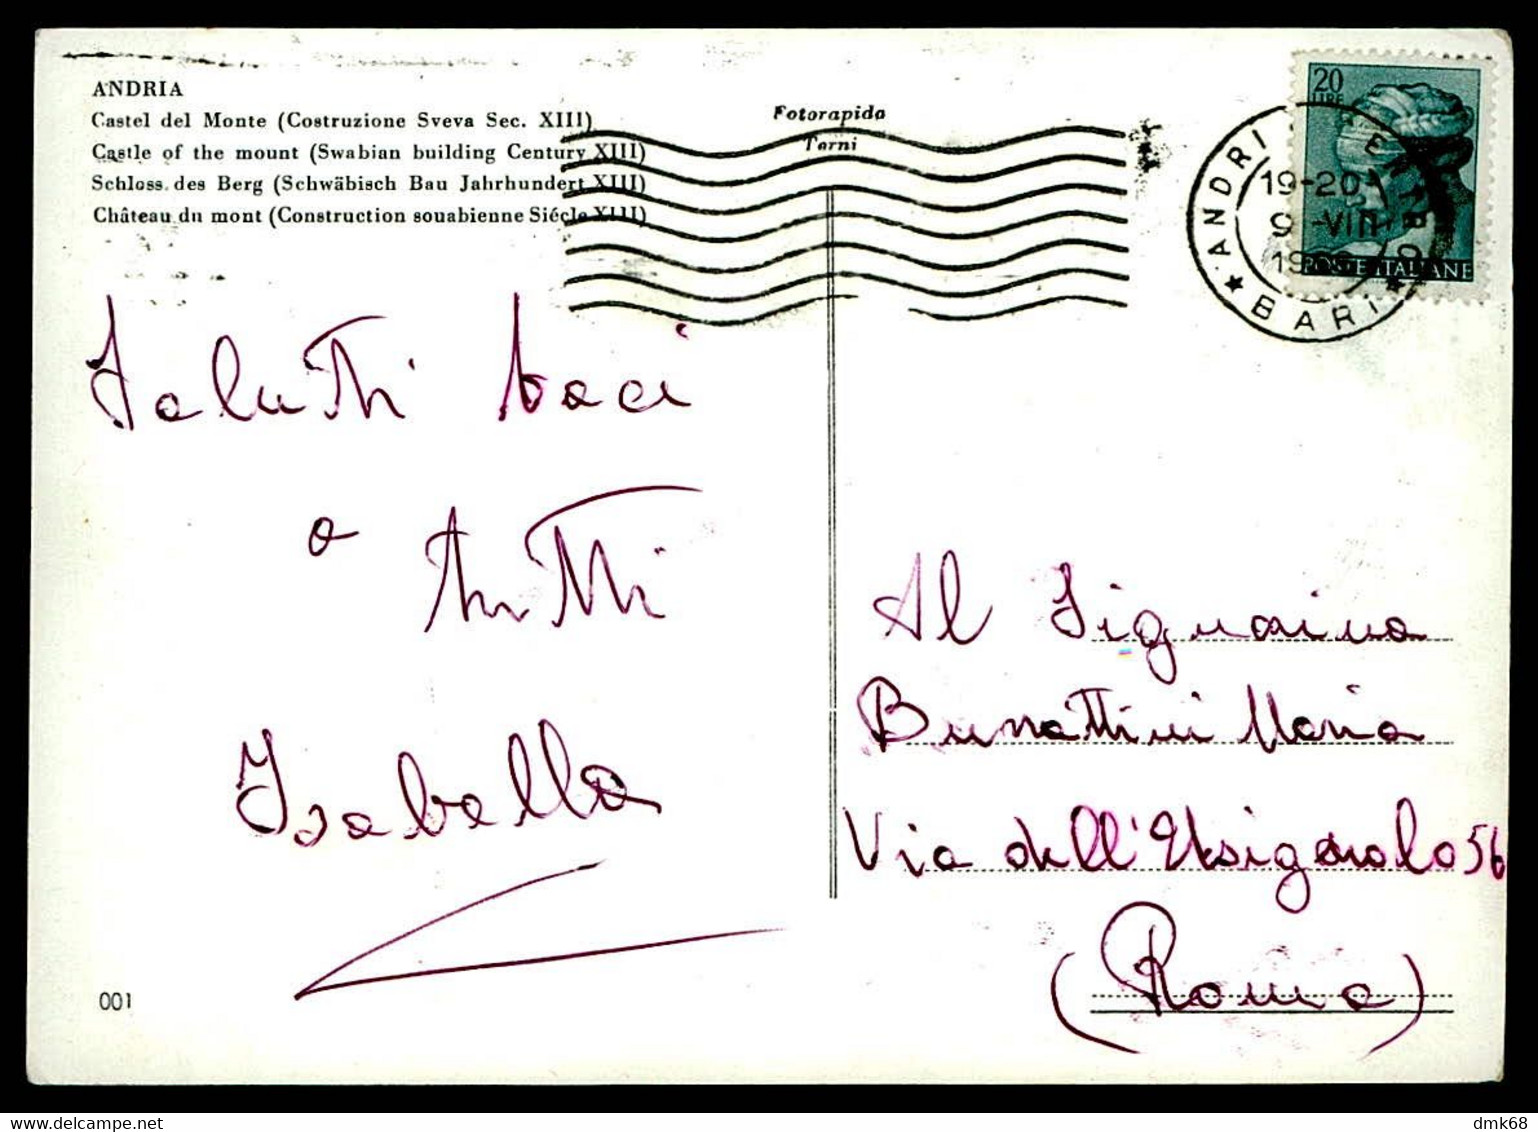 ANDRIA
Castel del Monte (Costruzione Sveva Sec. XIII)
Castle of the mount (Swabian building Century XIII)
Schloss des Berg (Schwäbisch Bau Jahrhundert XIII)
Château du mont (Construction souabienne Siécle XIII)
Fotorapida
Terni
20
LIRE
POSTE ITALIANE
ANDRIA
19-20
9-VIII
BARI
Saluti baci
a tutti
Isabella
Al Signorina
Maria
Via dell' 56
(Roma)
001
dmk68